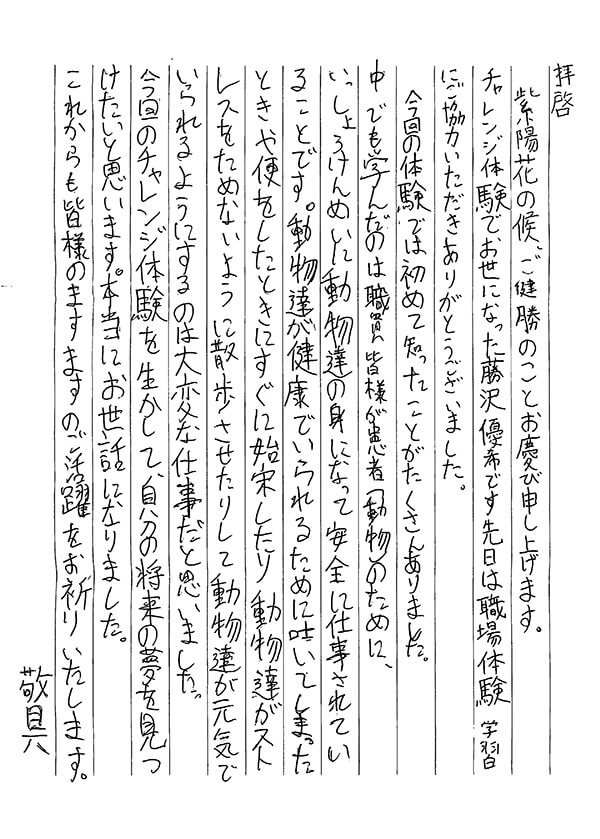 拝啓
紫陽花の候、ご健勝のことお慶び申し上げます。
チャレンジ体験でお世になった藤沢優希です先日は職場体験学習
にご協力いただきありがとうございました。
今回の体験では初めて知ったことがたくさんありました。
中でも学んだのは職員皆様が患者(動物)のために、
いっしょうけんめいに動物達の身になって安全に仕事されてい
ることです。動物達が健康でいられるために吐いてしまった
ときや便をしたときにすぐに始末したり動物達がスト
レスをためないように散歩させたりして動物達が元気で
いられるようにするのは大変な仕事だと思いました。
今回のチャレンジ体験を生かして、自分の将来の夢を見つ
けたいと思います。本当にお世話になりました。
これからも皆様のますますのご活躍をお祈りいたします。
敬具